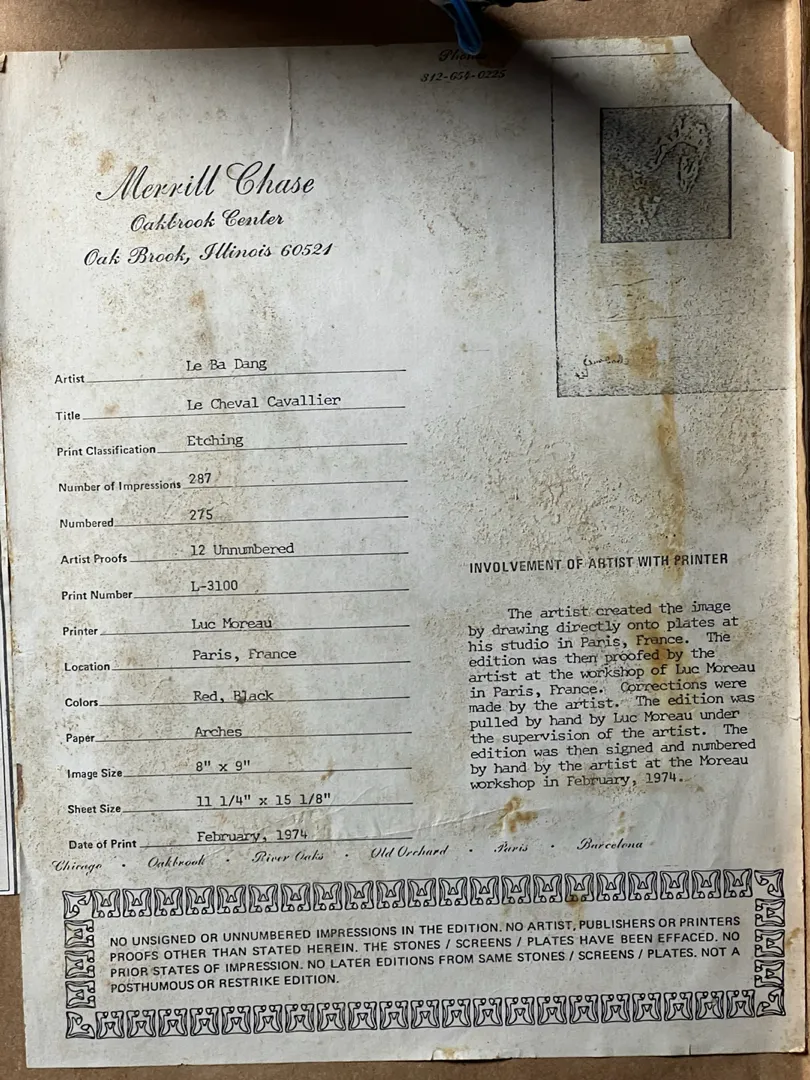 Phone
312-654-0225
Merrill Chase
Oakbrook Center
Oak Brook, Illinois 60521
Artist Le Ba Dang
Title Le Cheval Cavallier
Print Classification Etching
Number of Impressions 287
Numbered 275
Artist Proofs 12 Unnumbered
Print Number L-3100
Printer Luc Moreau
Location Paris, France
Colors Red, Black
Paper Arches
Image Size 8" x 9"
Sheet Size 11 1/4" x 15 1/8"
Date of Print February, 1974
INVOLVEMENT OF ARTIST WITH PRINTER
The artist created the image
by drawing directly onto plates at
his studio in Paris, France. The
edition was then proofed by the
artist at the workshop of Luc Moreau
in Paris, France. Corrections were
made by the artist. The edition was
pulled by hand by Luc Moreau under
the supervision of the artist. The
edition was then signed and numbered
by hand by the artist at the Moreau
workshop in February, 1974.
Chicago · Oakbrook · River Oaks · Old Orchard · Paris · Barcelona
NO UNSIGNED OR UNNUMBERED IMPRESSIONS IN THE EDITION. NO ARTIST, PUBLISHERS OR PRINTERS
PROOFS OTHER THAN STATED HEREIN. THE STONES / SCREENS / PLATES HAVE BEEN EFFACED. NO
PRIOR STATES OF IMPRESSION. NO LATER EDITIONS FROM SAME STONES / SCREENS / PLATES. NOT A
POSTHUMOUS OR RESTRIKE EDITION.